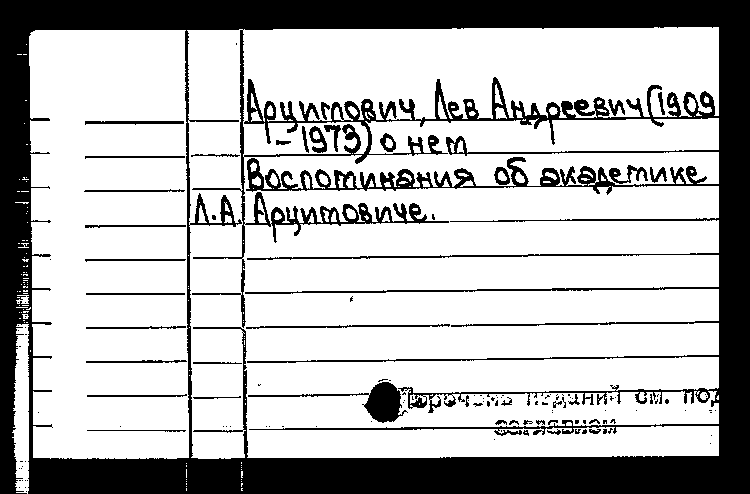 Арцимович, Лев Андреевич (1909
– 1973) о нем
Воспоминания об академике
Л.А. Арцимовиче.
Перечень изданий см. под
заглавием